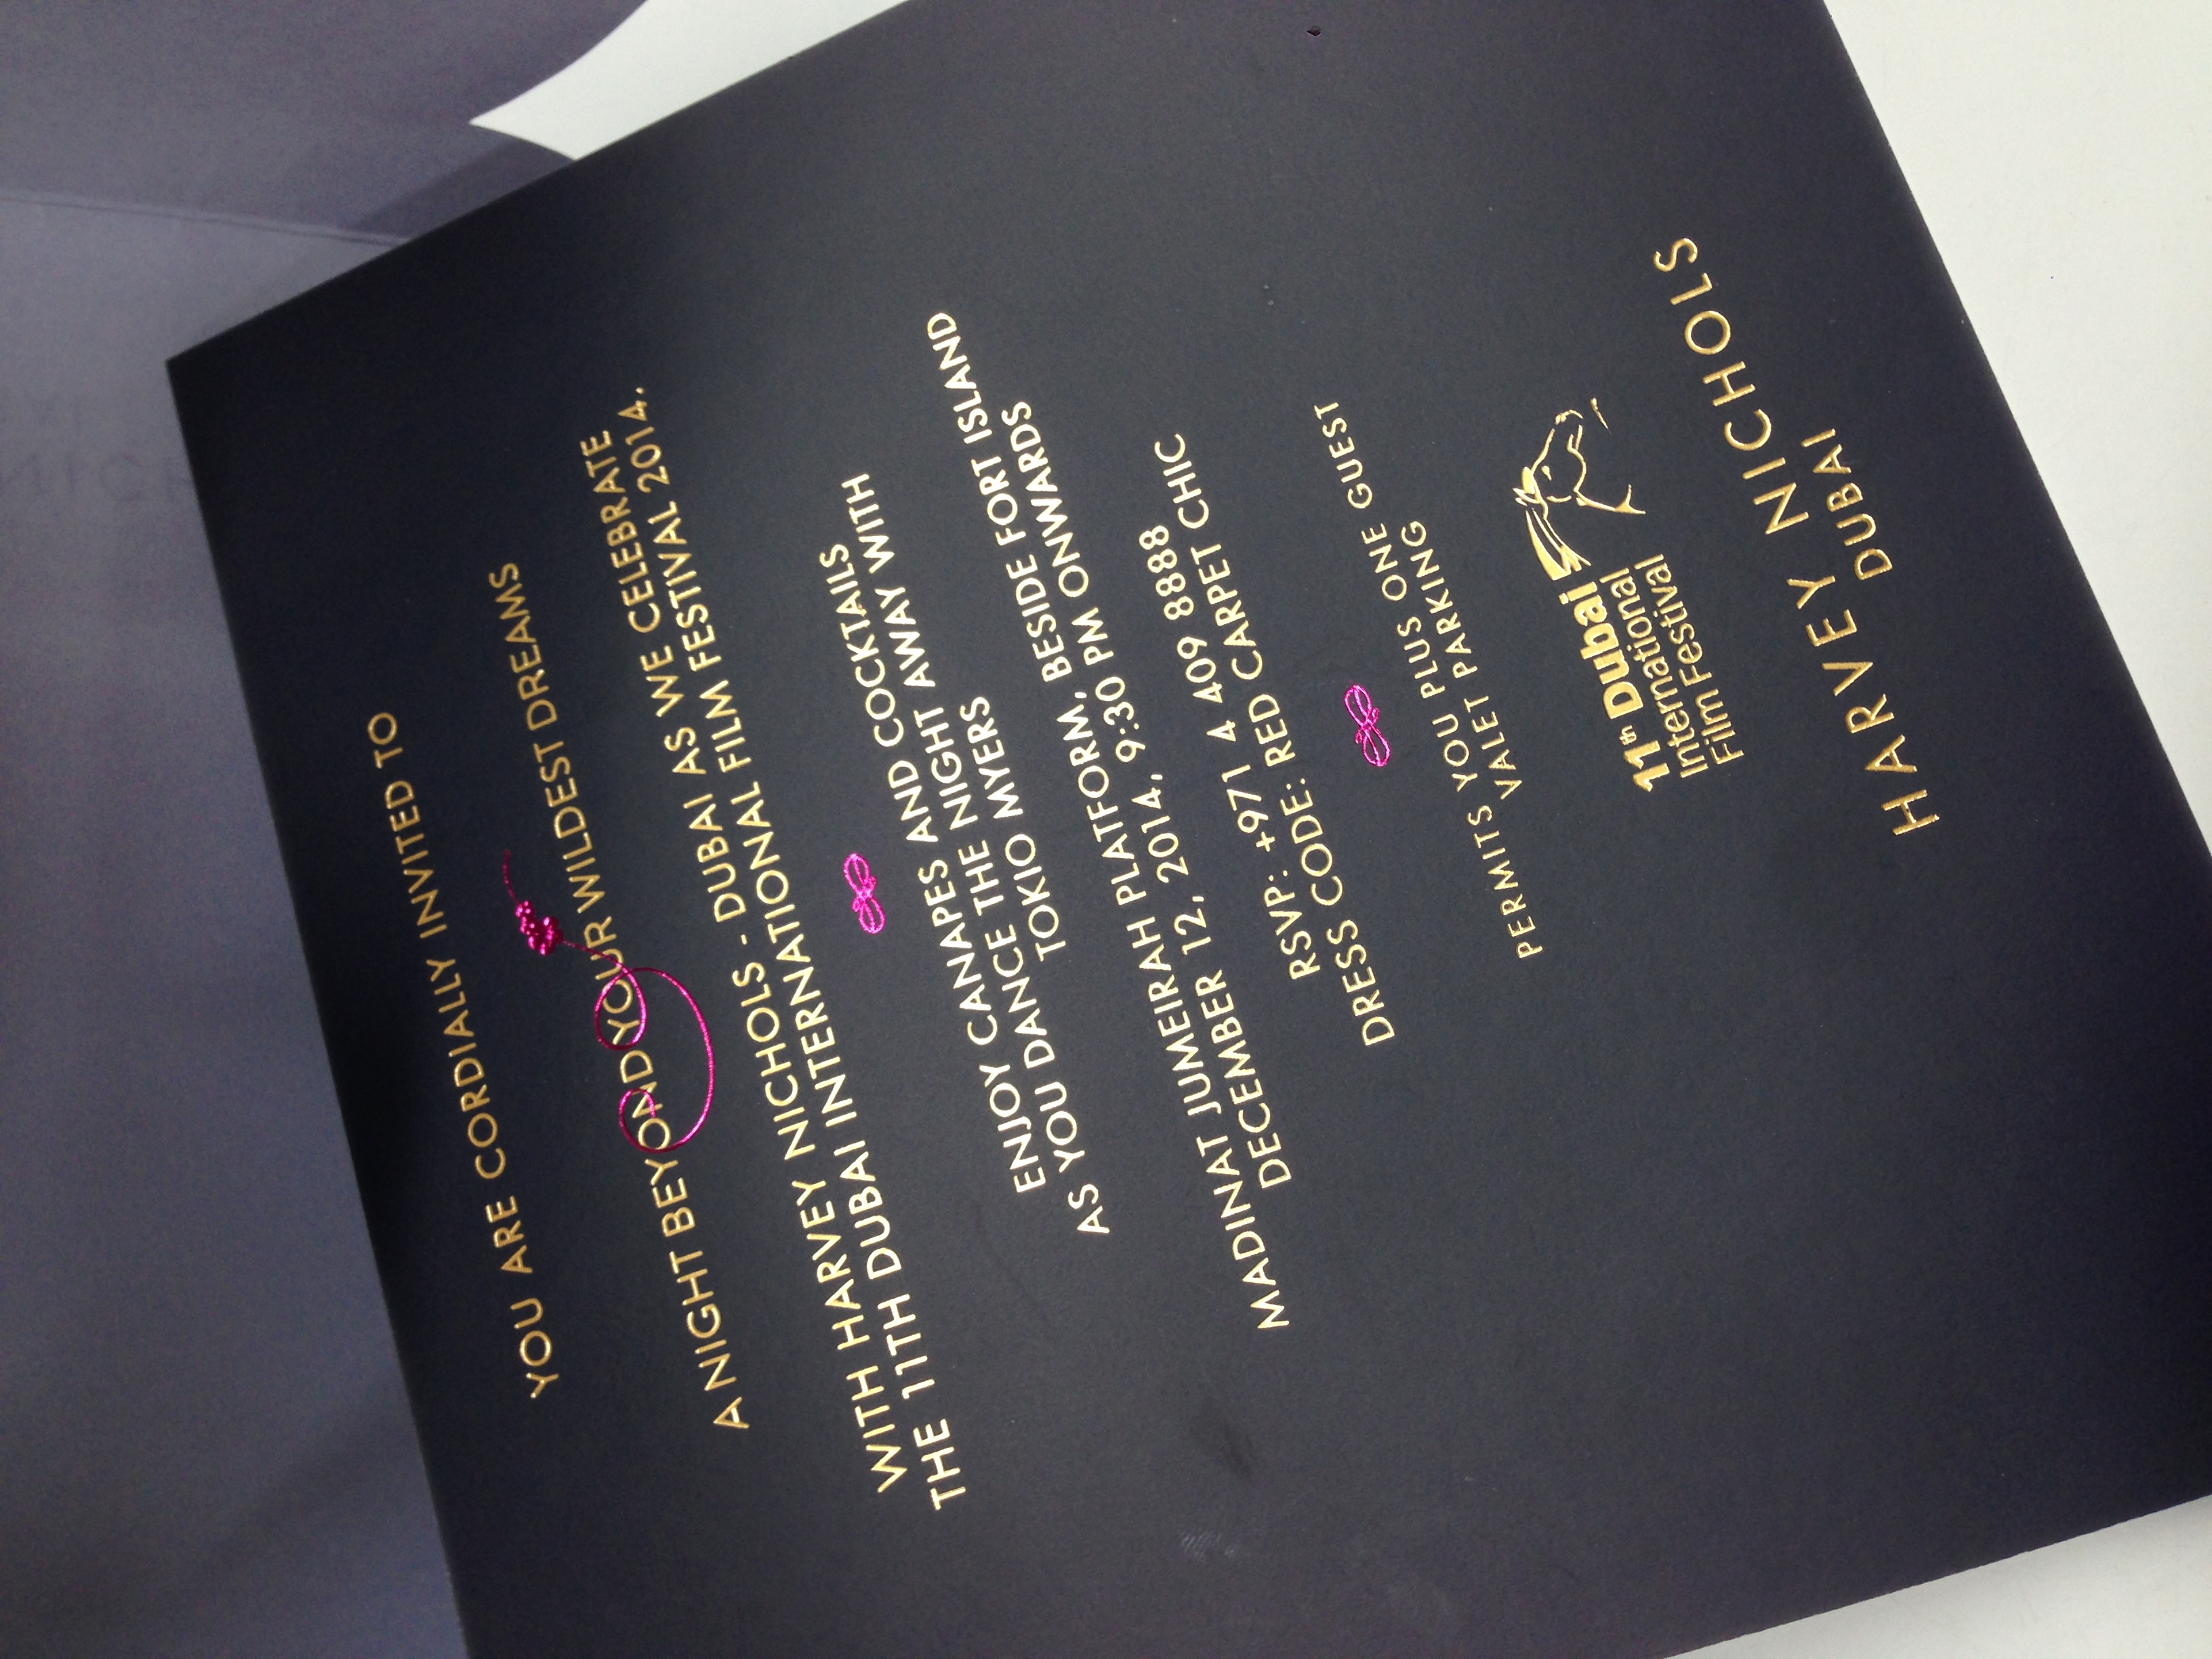 YOU ARE CORDIALLY INVITED TO
A NIGHT BEYOND YOUR WILDEST DREAMS
WITH HARVEY NICHOLS - DUBAI AS WE CELEBRATE
THE 11TH DUBAI INTERNATIONAL FILM FESTIVAL 2014.
ENJOY CANAPES AND COCKTAILS
AS YOU DANCE THE NIGHT AWAY WITH
TOKIO MYERS
MADINAT JUMEIRAH PLATFORM, BESIDE FORT ISLAND
DECEMBER 12, 2014, 9:30 PM ONWARDS
RSVP: +971 4 409 8888
DRESS CODE: RED CARPET CHIC
PERMITS YOU PLUS ONE GUEST
VALET PARKING
11th Dubai
International
Film Festival
HARVEY NICHOLS
DUBAI